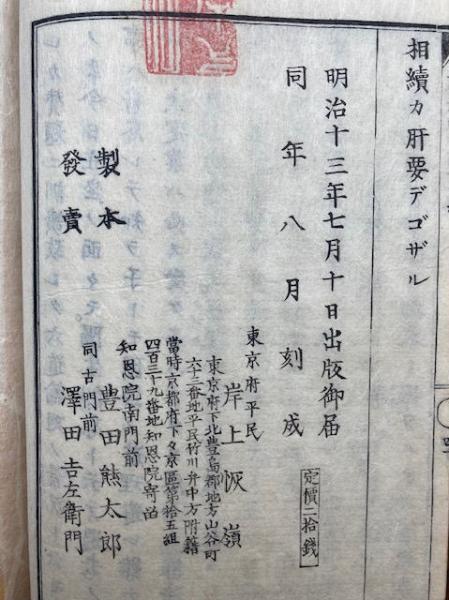 相續カ肝要デゴザル
明治十三年七月十日出版御届
同年八月刻成
定價二拾錢
東京府平民
岸上恢嶺
東京府下北豊島郡地方山谷町
六十三番地平民竹川弁中方附籍
當時京都府下々京區第拾五組
四百三十九番地知恩院寄留
知恩院南門前
製本 豊田熊太郎
同古門前
發賣 澤田吉左衛門